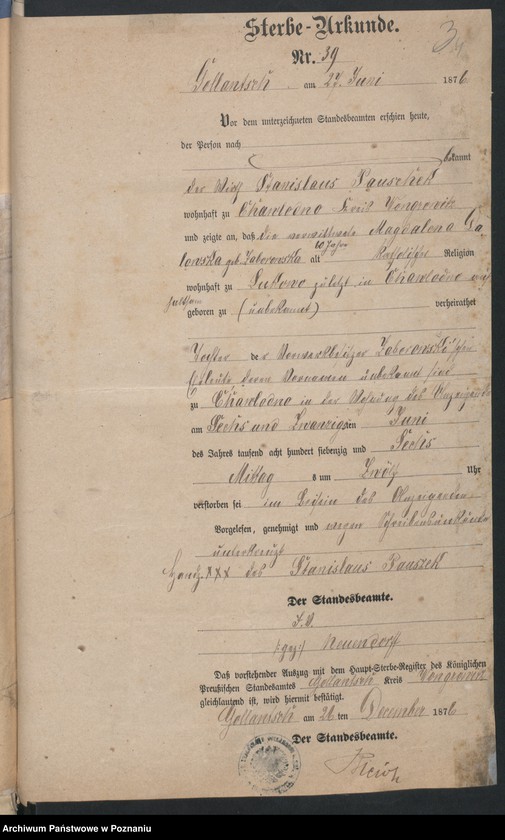 Sterbe-Urkunde.
Nr. 39
Gollantsch am 27. Juni 1876
Vor dem unterzeichneten Standesbeamten erschien heute,
der Person nach
bekannt
der Wirth Stanislaus Pauschek
wohnhaft zu Chawlodno Kreis Wongrowitz
und zeigte an, daß die verwittwete Magdalena
geb. Zaborowska alt 60 Jahre Katholischer Religion
wohnhaft zu Lukowo zuletzt in Chawlodno
geboren zu (unbekannt) verheirathet
Tochter der Vorwerksbesitzer Zaborowski'schen
Eheleute deren Vornamen unbekannt sind
zu Chawlodno in der Wohnung des Anzeigenden
am Sechs und Zwanzigsten Juni
des Jahres tausend acht hundert siebenzig und Sechs
Mittag s um Zwölf Uhr
verstorben sei im Beisein des Anzeigenden
Vorgelesen, genehmigt und wegen
unterkreuzt
Handz. XXX des Stanislaus Pauszek
Der Standesbeamte.
I. V.
(gez.) Neuendorff
Daß vorstehender Auszug mit dem Haupt-Sterbe-Register des Königlichen
Preußischen Standesamtes Gollantsch Kreis Wongrowitz
gleichlautend ist, wird hiermit bestätigt.
Gollantsch am 26 ten December 1876
Der Standesbeamte.
Archiwum Państwowe w Poznaniu